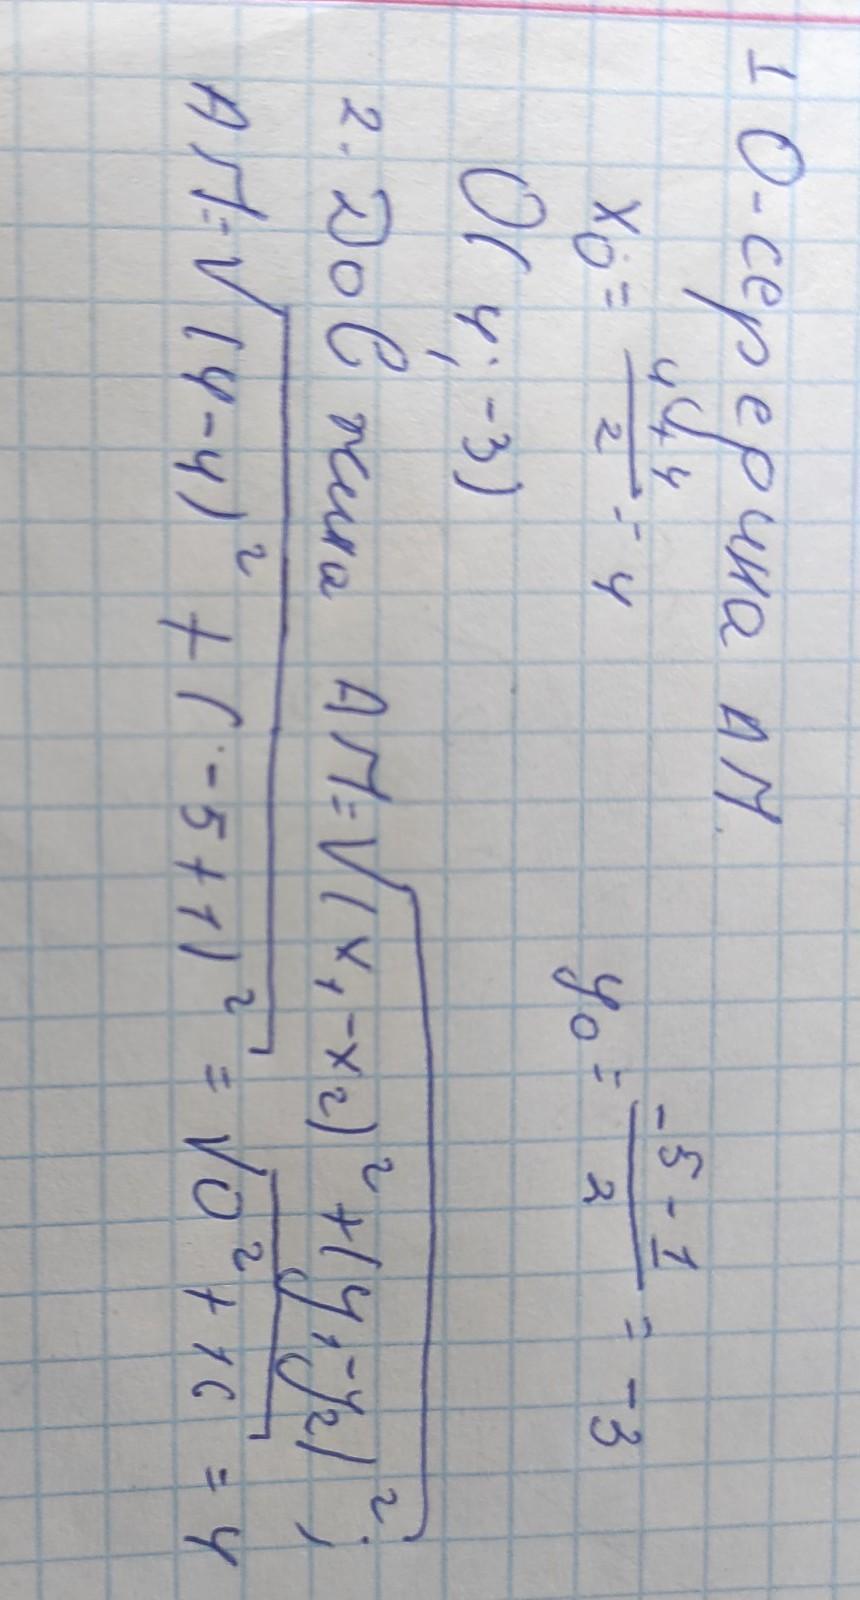 1 О-середина АМ.
x₀ = (4+4)/2 = 4 y₀ = (-5-1)/2 = -3
О(4; -3)
2. Довжина АМ=√((x₁-x₂)²+(y₁-y₂)²);
АМ=√((4-4)²+(-5+1)²) = √(0²+16) = 4